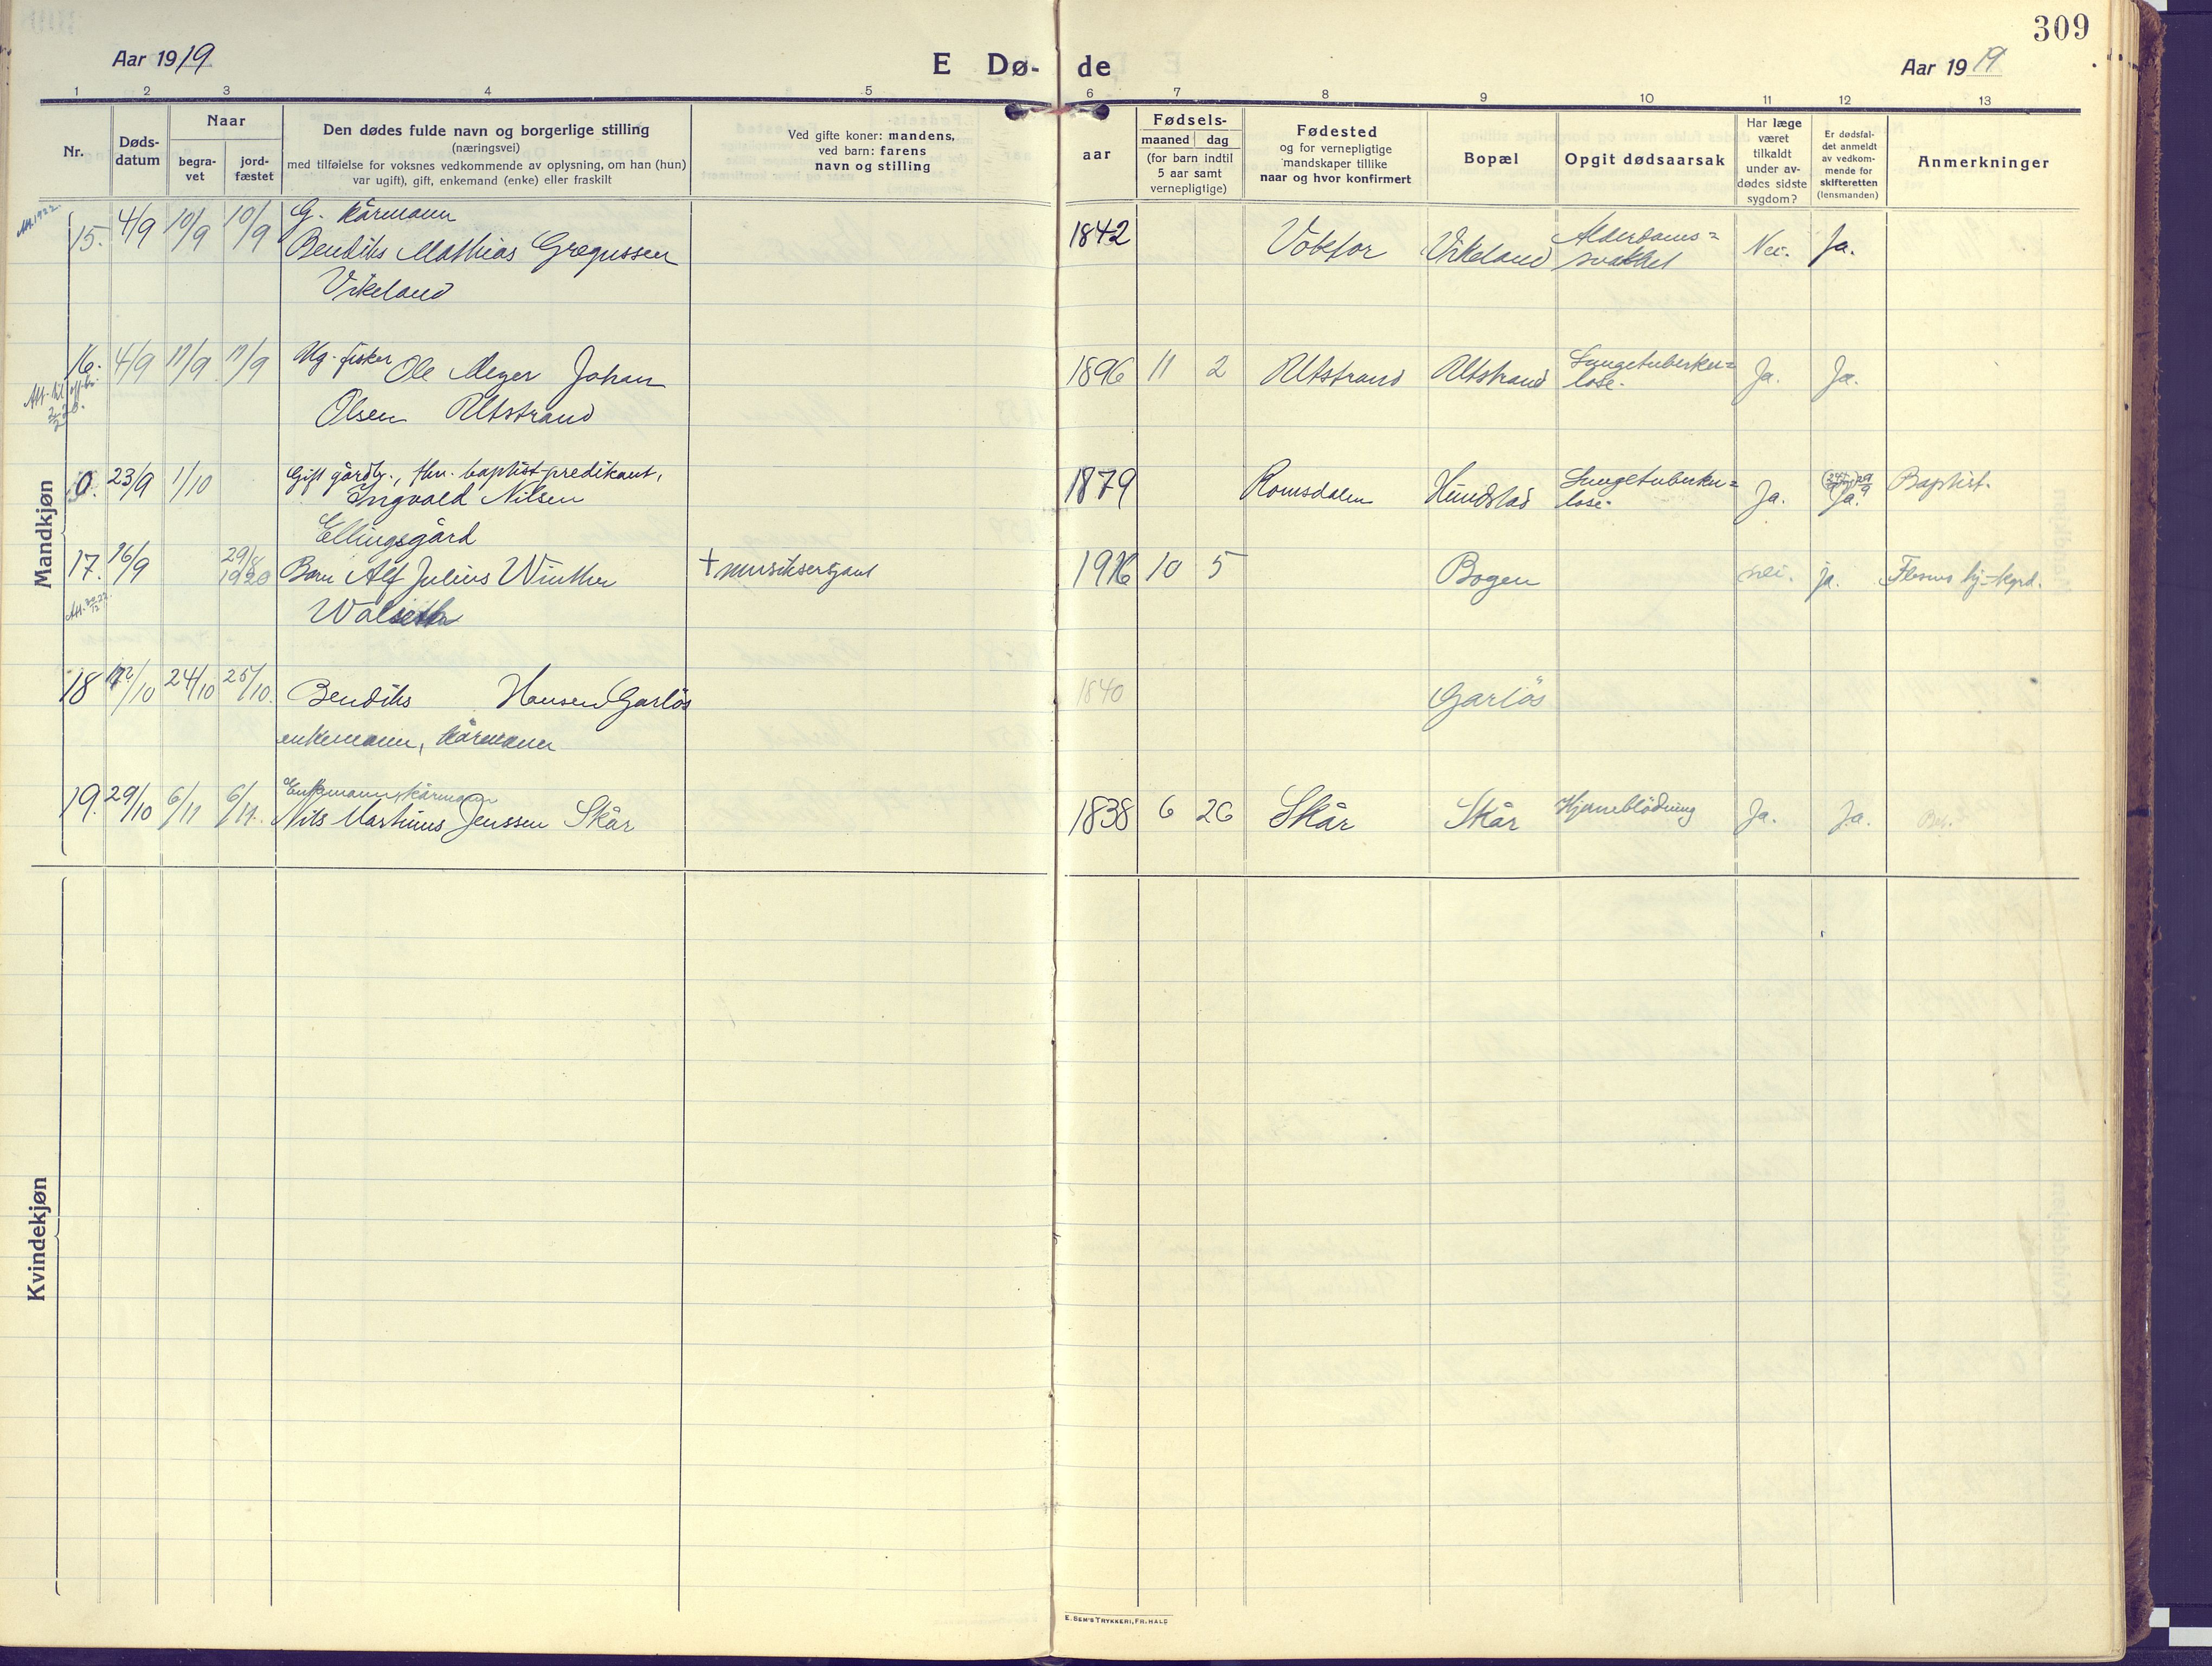 309
Aar 1919
E Dø-
de
Aar 1919
1 2 3 4 5 6 7 8 9 10 11 12 13
Nr.
Døds-
datum
Naar
begra-
vet
jord-
fæstet
Den dødes fulde navn og borgerlige stilling
(næringsvei)
med tilføielse for voksnes vedkommende av oplysning, om han (hun)
var ugift), gift, enkemand (enke) eller fraskilt
Ved gifte koner: mandens,
ved barn: farens
navn og stilling
aar
Fødsels-
maaned dag
(for barn indtil
5 aar samt
vernepligtige)
Fødested
og for vernepligtige
mandskaper tillike
naar og hvor konfirmert
Bopæl
Opgit dødsaarsak
Har læge
været
tilkaldt
under av-
dødes sidste
sygdom?
Er dødsfal-
det anmeldt
av vedkom-
mende for
skifteretten
(lensmanden)
Anmerkninger
Mandkjøn
15. 4/9 10/9 10/9 G. kårmann
Bendiks Mathias Gregussen
Vikeland
1842 Votefor Vikeland Alderdoms=
svakhet Nei. Ja.
16. 4/9 17/9 17/9 Ug. fisker Ole Meyer Johan
Olsen Altstrand
1896 11 2 Altstrand Altstrand Lungetuberku=
lose. Ja. Ja.
0. 23/9 1/10 Gift gårdbr., fhv. baptist-predikant,
Ingvald Nilsen
Ellingsgård
1879 Romsdalen Hundstad Lungetuberku=
lose. Ja. Ja. Baptist.
17. 16/9 29/8
1920 Barn Alf Julius Winther
Walseth
+ musiksersjant 1916 10 5 Bogen nei. ja.
18 /10 24/10 25/10. Bendiks Hansen Garløs
enkemann, kårmann
1840 Garløs
19. 29/10 6/11 6/11. Enkemann kårmann
Nils Martinus Jenssen Skår
1838 6 26 Skår Skår Hjerneblödning Ja. Ja.
Kvindekjøn
E. SEM'S TRYKKERI, FR.HALD